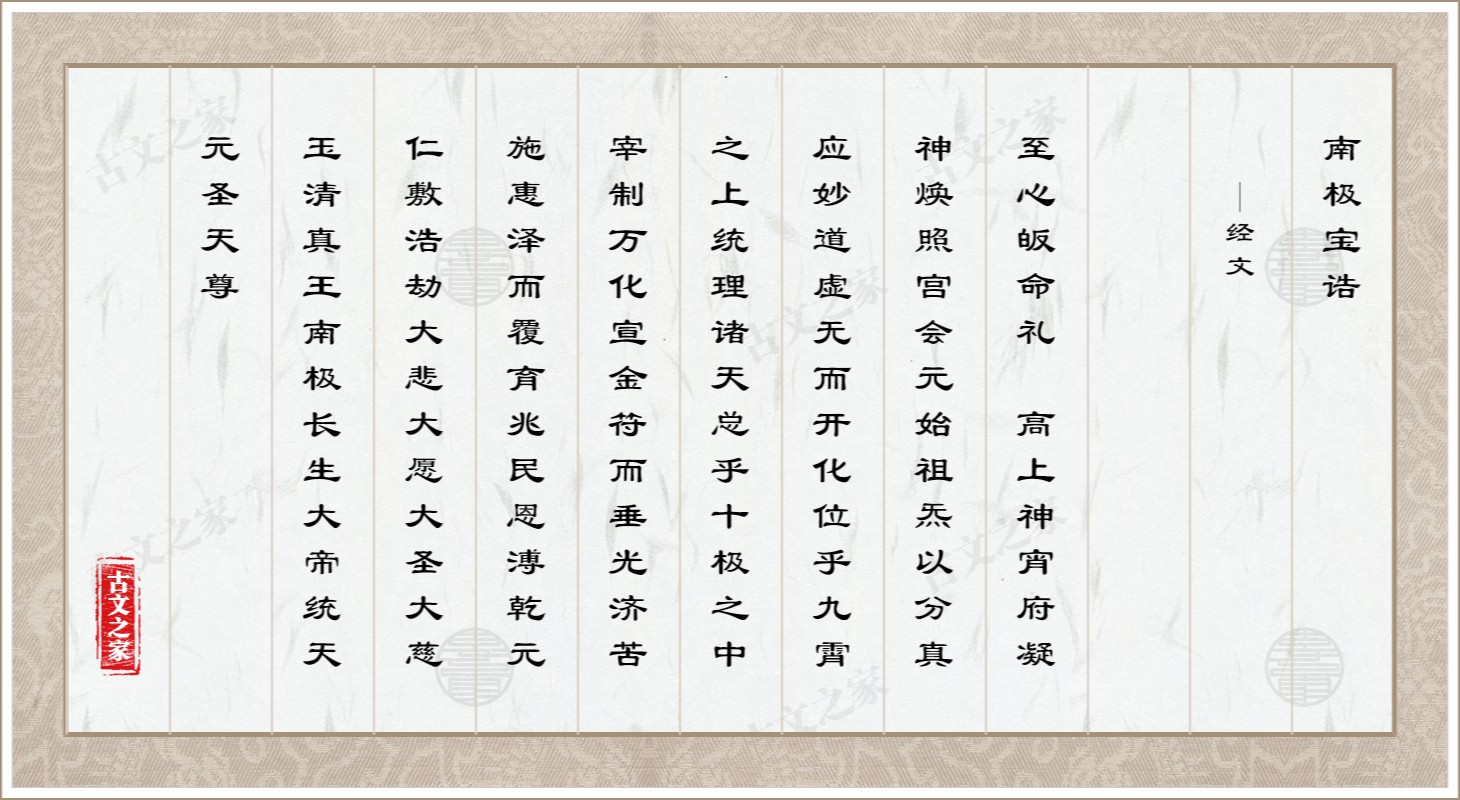 南极宝诰
——经文
至心皈命礼　高上神宵府凝
神焕照宫会元始祖炁以分真
应妙道虚无而开化位乎九霄
之上统理诸天总乎十极之中
宰制万化宣金符而垂光济苦
施惠泽而覆育兆民恩溥乾元
仁敷浩劫大悲大愿大圣大慈
玉清真王南极长生大帝统天
元圣天尊
古文之家
古文之家
古文之家
古文之家
古文之家
古文之家
古文之家